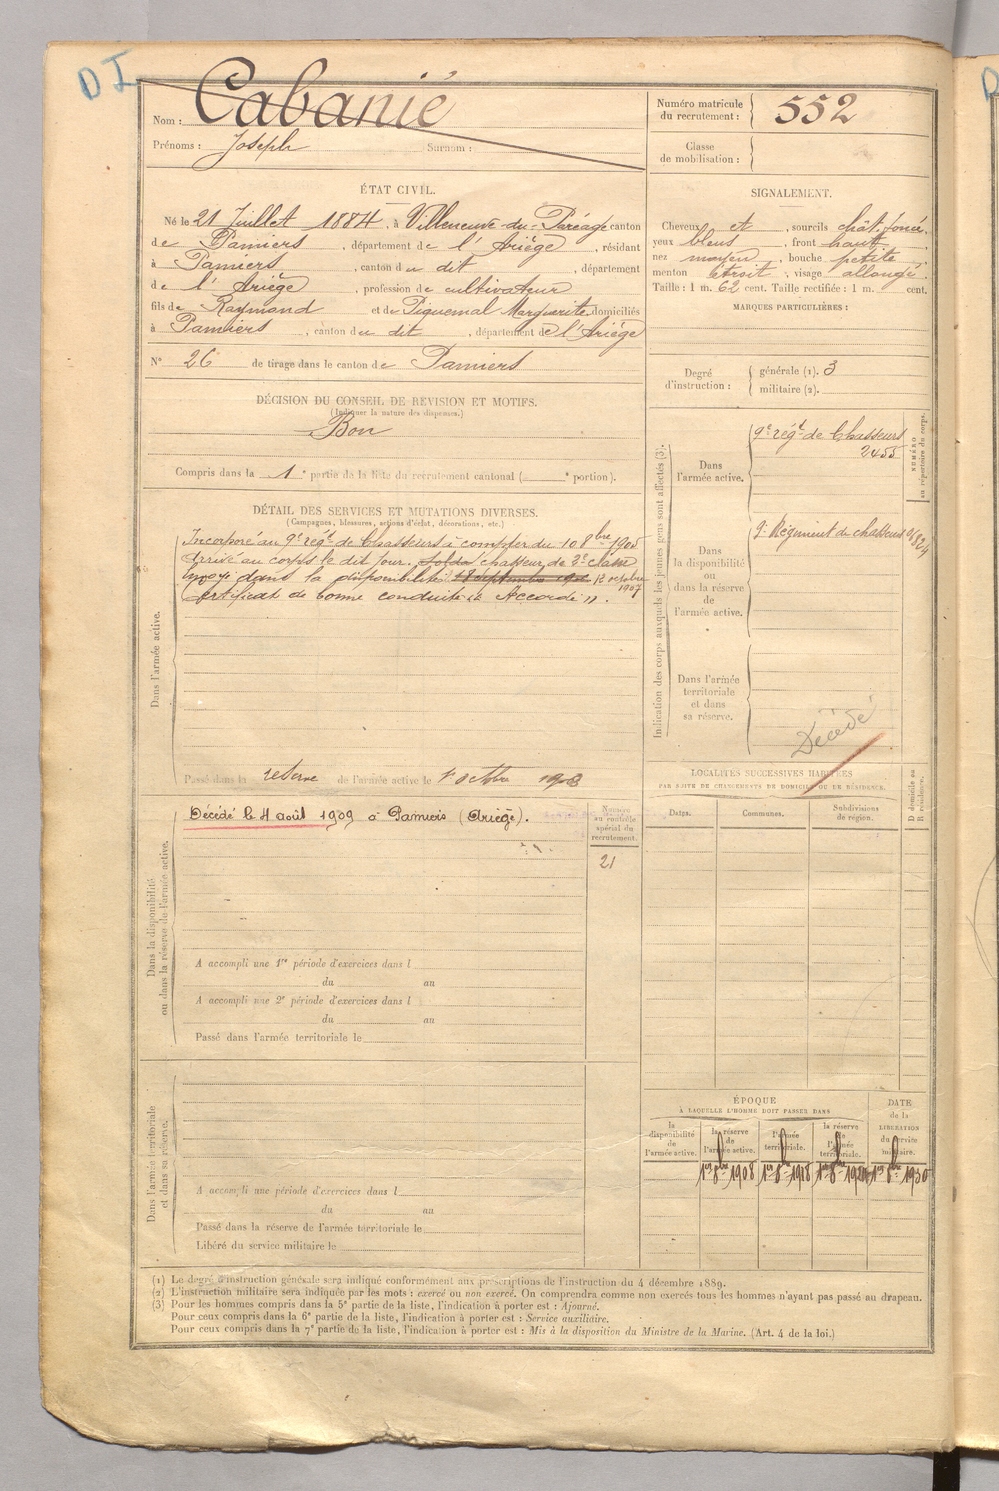 D I
Nom : Cabanié
Prénoms : Joseph Surnom :
Numéro matricule du recrutement : 552
Classe de mobilisation :
ÉTAT CIVIL.
Né le 21 Juillet 1884, à Villeneuve-du-Paréage canton
de Pamiers, département de l'Ariège, résidant
à Pamiers, canton du dit, département
de l'Ariège, profession de cultivateur
fils de Raymond et de Piquemal Marguerite domiciliés
à Pamiers, canton du dit, département de l'Ariège
N° 26 de tirage dans le canton de Pamiers
SIGNALEMENT.
Cheveux et, sourcils chât. foncé,
yeux bleus, front haut,
nez moyen, bouche petite,
menton étroit, visage allongé.
Taille : 1 m. 62 cent. Taille rectifiée : 1 m. cent.
MARQUES PARTICULIÈRES :
Degré d'instruction : générale (1). 3
militaire (2).
DÉCISION DU CONSEIL DE REVISION ET MOTIFS.
(Indiquer la nature des dispenses.)
Bon
Compris dans la 1e partie de la liste du recrutement cantonal ( e portion).
DÉTAIL DES SERVICES ET MUTATIONS DIVERSES.
(Campagnes, blessures, actions d'éclat, décorations, etc.)
Dans l'armée active.
Incorporé au 9e régt de Chasseurs à compter du 10 8bre 1905
Arrivé au corps le dit jour. chasseur de 2e classe
dans la disponibilité 12 octobre 1907
Certificat de bonne conduite Accordé ».
Passé dans la réserve de l'armée active le 1er octobre 1908
Indication des corps auxquels les jeunes gens sont affectés (3).
Dans l'armée active.
9e régt de Chasseurs
2455
NUMÉRO au répertoire du corps.
Dans la disponibilité ou dans la réserve de l'armée active.
9e Régiment de chasseurs
Dans l'armée territoriale et dans sa réserve.
Décédé
LOCALITÉS SUCCESSIVES HABITÉES
PAR SUITE DE CHANGEMENTS DE DOMICILE OU DE RÉSIDENCE.
Dates.
Communes.
Subdivisions de région.
D domicile ou R résidence.
Dans la disponibilité ou dans la réserve de l'armée active.
Décédé le 4 août 1909 à Pamiers (Ariège).
Numéro au contrôle spécial du recrutement.
21
A accompli une 1re période d'exercices dans l
du au
A accompli une 2e période d'exercices dans l
du au
Passé dans l'armée territoriale le
Dans l'armée territoriale et dans sa réserve.
A accompli une période d'exercices dans l
du au
Passé dans la réserve de l'armée territoriale le
Libéré du service militaire le
ÉPOQUE
À LAQUELLE L'HOMME DOIT PASSER DANS
la disponibilité de l'armée active.
la réserve de l'armée active.
l'armée territoriale.
la réserve de l'armée territoriale.
DATE de la LIBÉRATION du service militaire.
1er 8bre 1908 1er 8bre 1918 1er 8bre 1924 1er 8bre 1930
(1) Le degré d'instruction générale sera indiqué conformément aux prescriptions de l'instruction du 4 décembre 1889.
(2) L'instruction militaire sera indiquée par les mots : exercé ou non exercé. On comprendra comme non exercés tous les hommes n'ayant pas passé au drapeau.
(3) Pour les hommes compris dans la 5e partie de la liste, l'indication à porter est : Ajourné.
Pour ceux compris dans la 6e partie de la liste, l'indication à porter est : Service auxiliaire.
Pour ceux compris dans la 7e partie de la liste, l'indication à porter est : Mis à la disposition du Ministre de la Marine. (Art. 4 de la loi.)